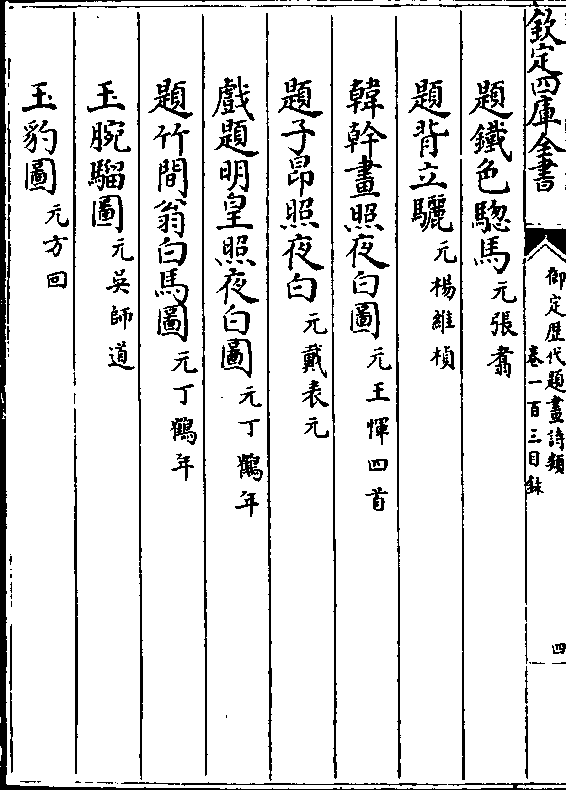 欽定四庫全書
御定歴代題畫詩類
卷一百三目錄
四
題鐵色驄馬元張翥
題背立驪元楊維楨
韓幹畫照夜白圖元王惲四首
題子昂照夜白元戴表元
戲題明皇照夜白圖元丁鶴年
題竹間翁白馬圖元丁鶴年
玉腕騮圖元吳師道
玉豹圖元方回